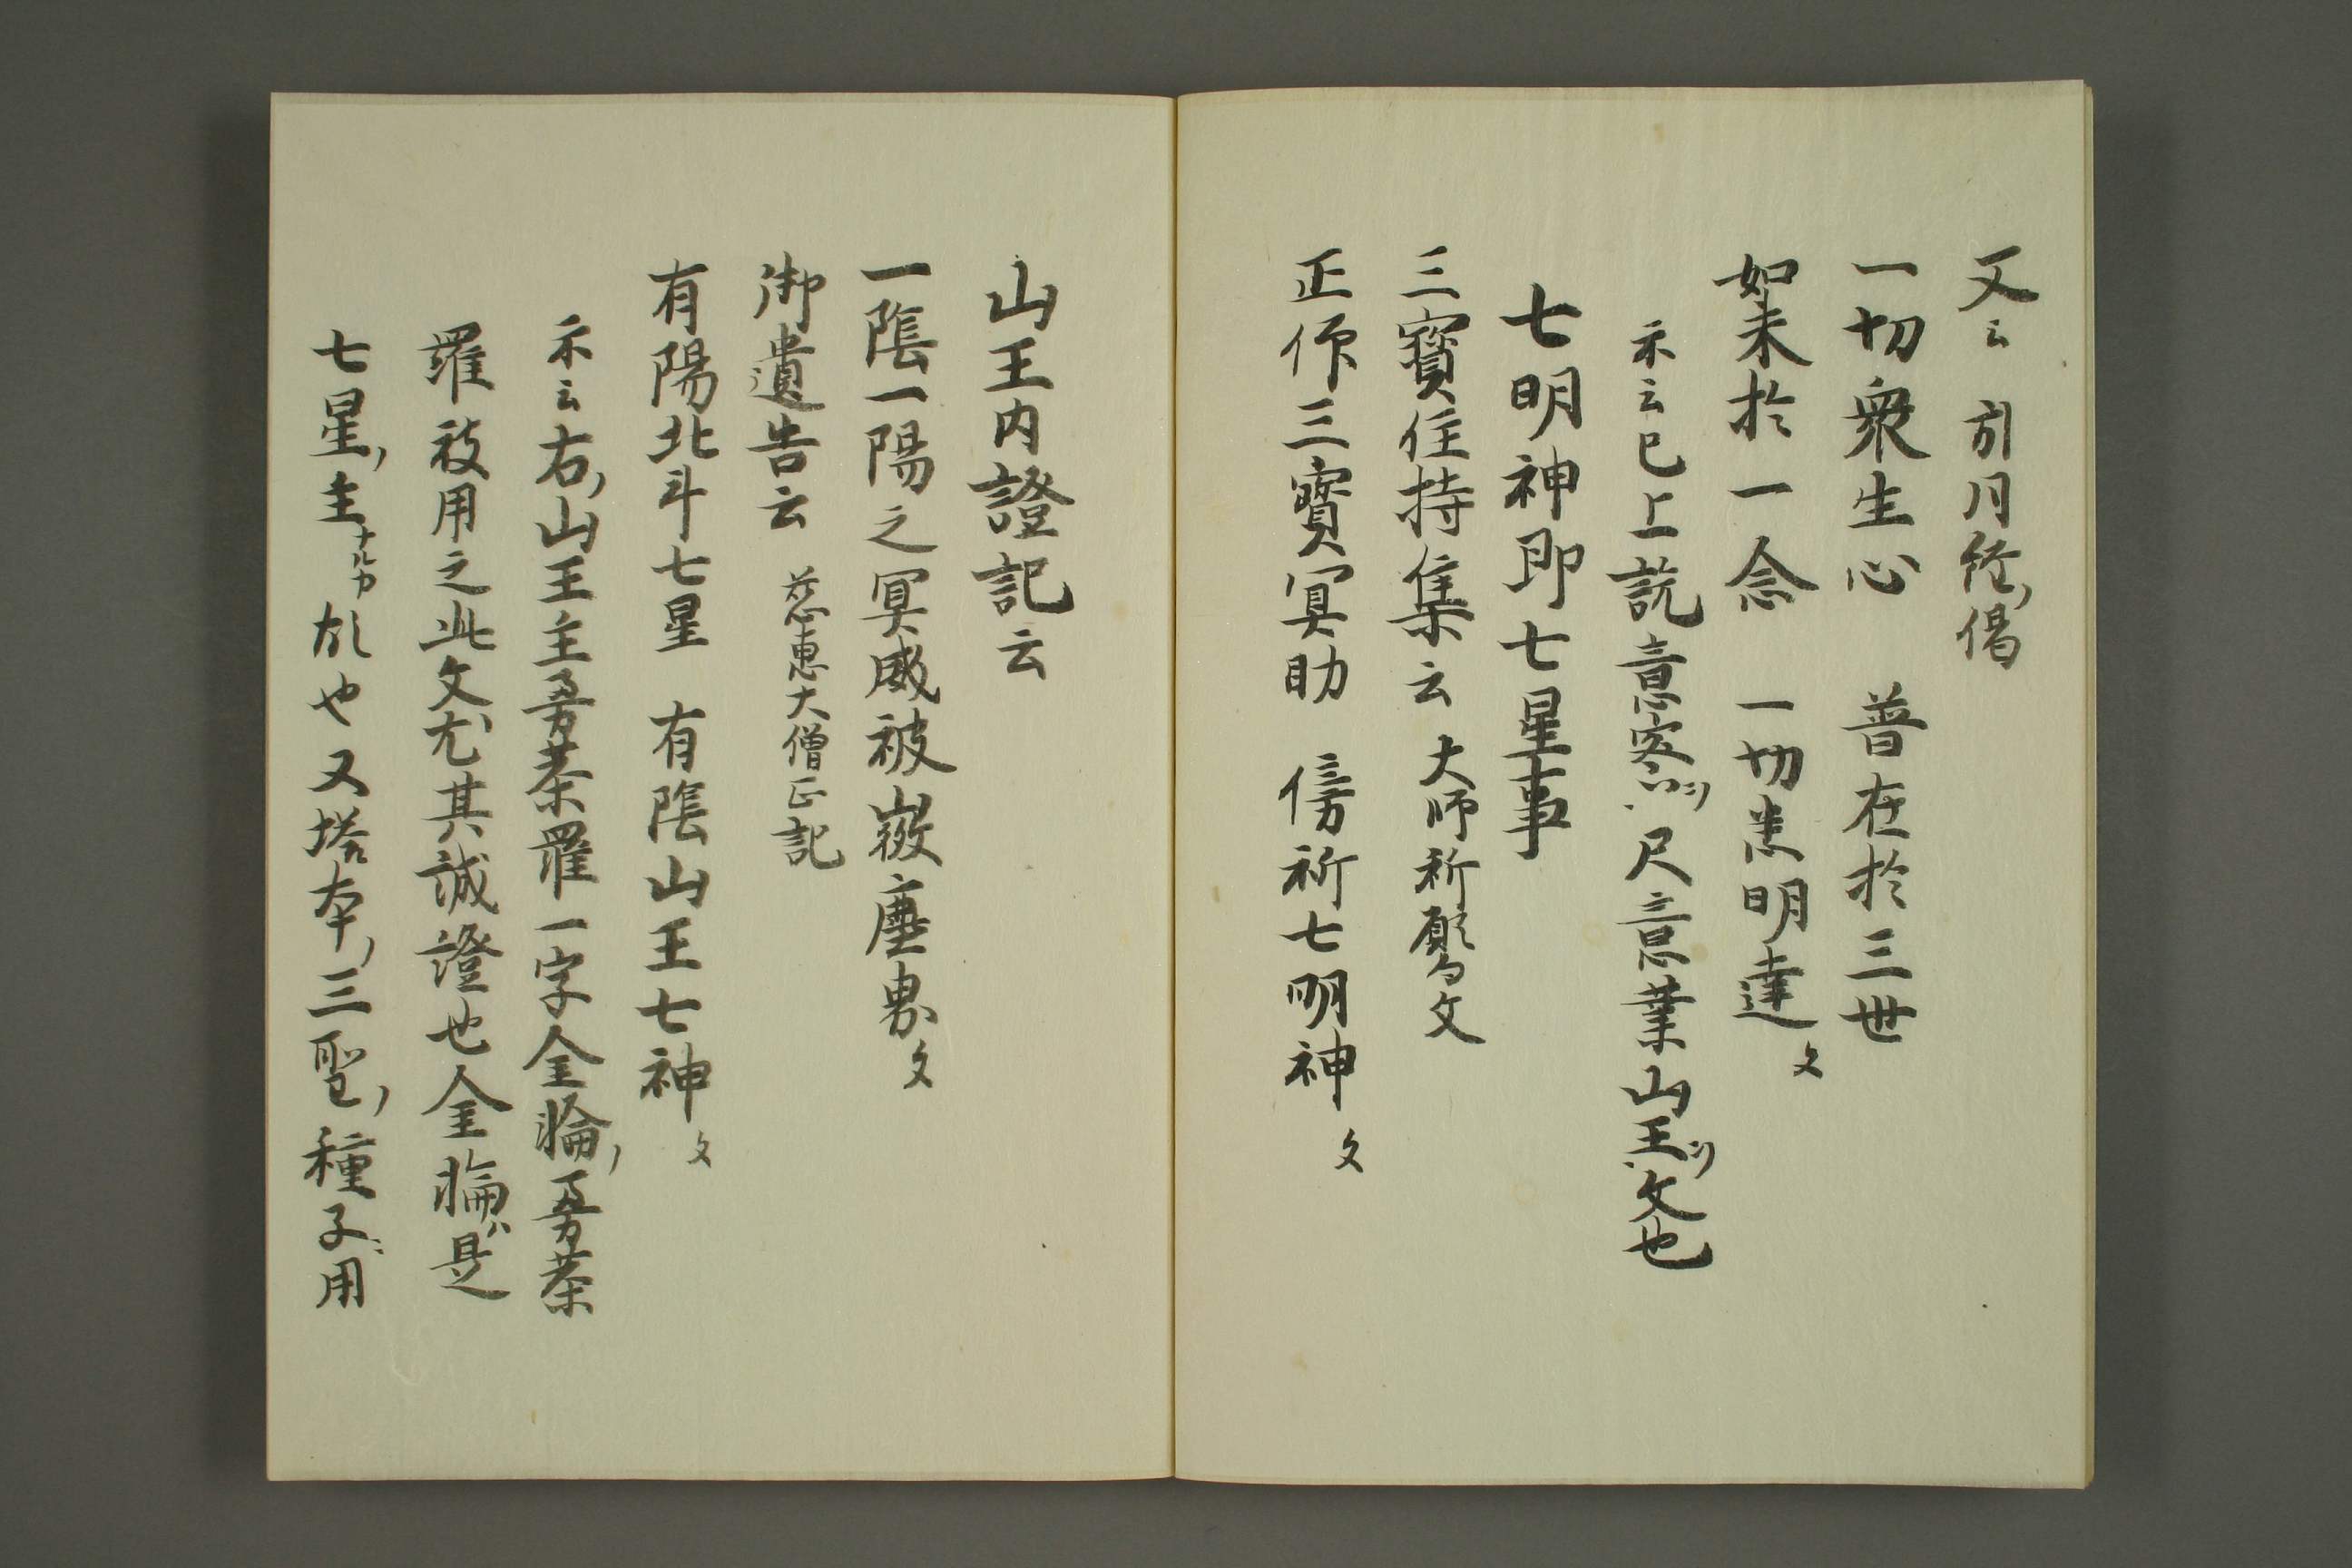 又云 引月経ノ偈
一切衆生心 普在於三世
如来於一念 一切悉明達文
示云已上説意密ハツリ尺意業山王ハツリ文也
七明神即七星事
三寳住持集云 大師祈願文
正仰三寳冥助 傍祈七明神 文
山王内證記云
一陰一陽之冥威被嶽塵界文
御遺告云 慈恵大僧正記
有陽北斗七星 有陰山王七神文
示云右ノ山王主吾荼羅一字金輪ノ吾荼
羅被用之此文尤其誠證也金輪ハ是
七星ノ主ナルカ故也又塔本ノ三聖ノ種子ニ用